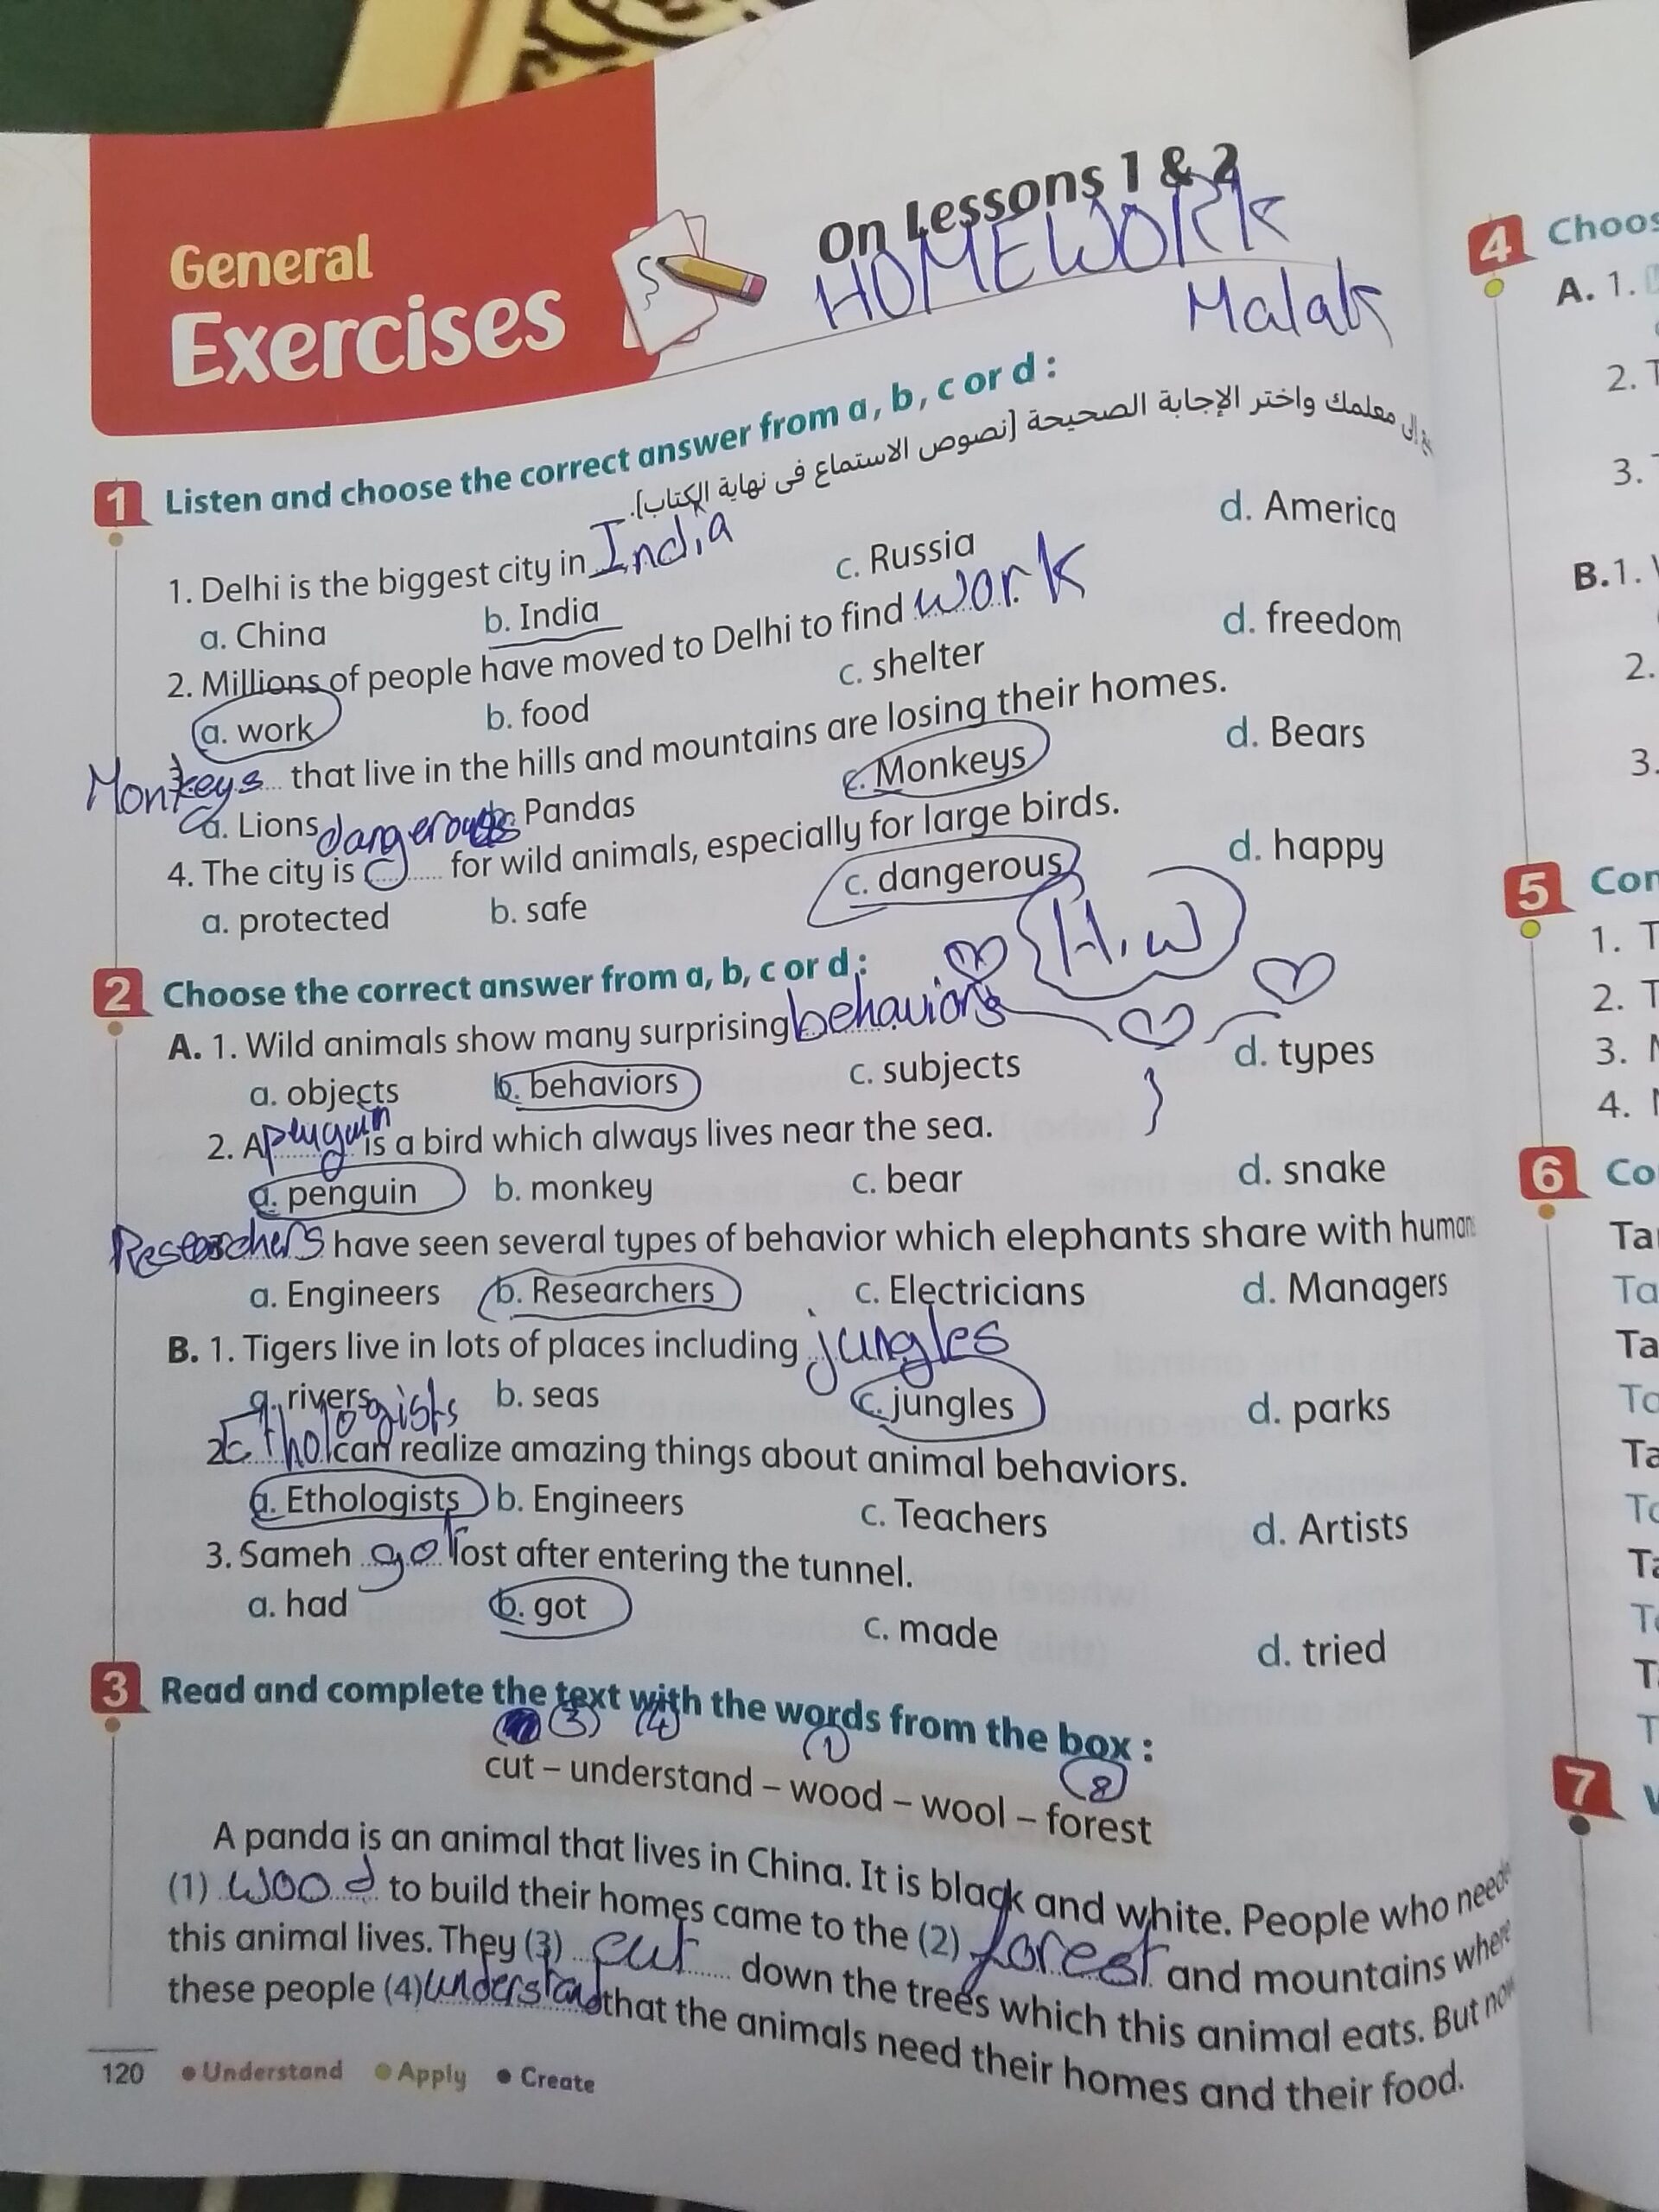 General
Exercises
On Lessons 1 & 2
HOMEWORK
Malak
1 Listen and choose the correct answer from a, b, c or d :
إلى معلمك واختر الإجابة الصحيحة [نصوص الاستماع فى نهاية الكتاب].
1. Delhi is the biggest city in India
a. China b. India c. Russia d. America
2. Millions of people have moved to Delhi to find work
a. work b. food c. shelter d. freedom
Monkeys that live in the hills and mountains are losing their homes.
a. Lions b. Pandas c. Monkeys d. Bears
dangerous
4. The city is C for wild animals, especially for large birds.
a. protected b. safe c. dangerous d. happy
H.W
2 Choose the correct answer from a, b, c or d :
A. 1. Wild animals show many surprising behaviors
a. objects b. behaviors c. subjects d. types
2. A penguin is a bird which always lives near the sea.
a. penguin b. monkey c. bear d. snake
Researchers have seen several types of behavior which elephants share with human
a. Engineers b. Researchers c. Electricians d. Managers
B. 1. Tigers live in lots of places including jungles
a. rivers b. seas c. jungles d. parks
2. Ethologists can realize amazing things about animal behaviors.
a. Ethologists b. Engineers c. Teachers d. Artists
3. Sameh got lost after entering the tunnel.
a. had b. got c. made d. tried
3 Read and complete the text with the words from the box :
(3) (4) (1)
cut – understand – wood – wool – forest
A panda is an animal that lives in China. It is black and white. People who need
(1) wood to build their homes came to the (2) forest and mountains where
this animal lives. They (3) cut down the trees which this animal eats. But now
these people (4) understand that the animals need their homes and their food.
120 • Understand • Apply • Create
4 Choos
A. 1.
2. T
3.
B. 1.
2.
3.
5 Con
1. T
2. T
3.
4.
6 Co
Ta
Ta
Ta
To
Ta
To
Ta
To
T
T
7